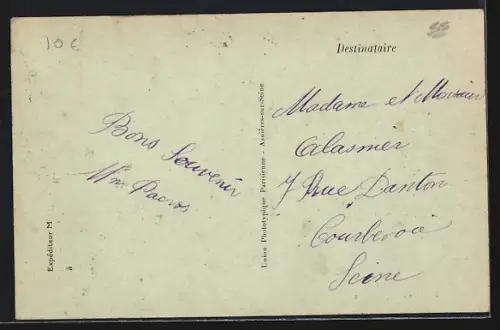 10 €
Destinataire
Bons Souvenir
Mme
Expéditeur M
à
Union Phototypique Parisienne - Asnières-sur-Seine
Madame et Monsieur
Calasmier
7 Rue Danton
Courbevoie
Seine